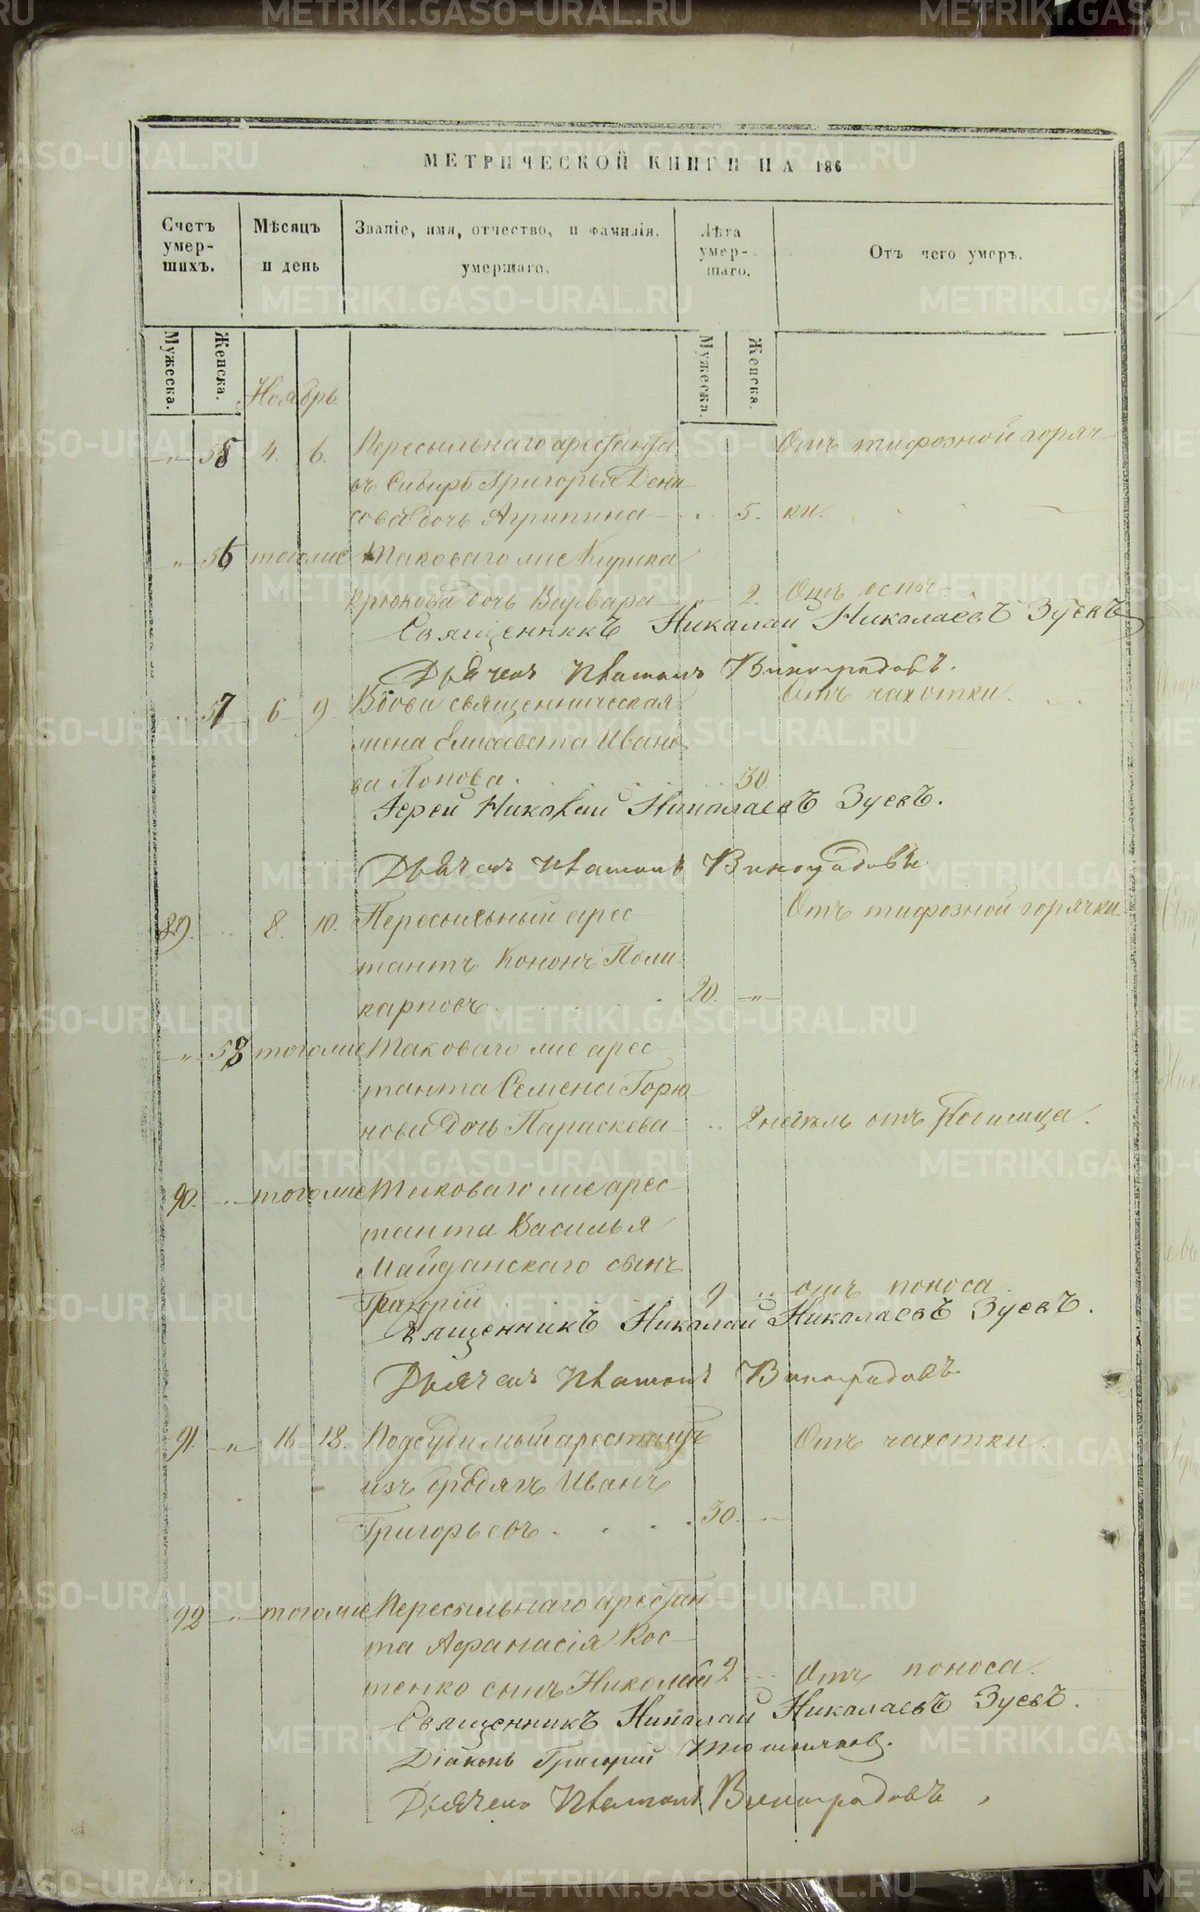 МЕТРИЧЕСКОЙ КНИГИ НА 186
Счетъ умер-шихъ.
Мѣсяцъ и день
Званіе, имя, отчество, и фамилія. умершаго.
Лѣта умер-шаго.
Отъ чего умеръ.
Мужеска. Женска.
Мужеска. Женска.
Ноябрь.
„ 55 4. 6. Пересыльнаго арестанта Отъ тифозной горяч
въ Сибирь Григорья Дени
сова дочь Агрипина 5. ки.
„ 56 тогоже Таковаго же Кирика
Крюкова дочь Варвара „ 2. Отъ оспы
Священникъ Николай Николаевъ Зуевъ
Дьячекъ Платонъ Виноградовъ.
57 6 9. Вдова священническая Отъ чахотки.
жена Елисавета Ивано
ва Попова. 30.
Іерей Николай Николаевъ Зуевъ.
Дьячекъ Платонъ Виноградовъ.
89. 8. 10. Пересыльный арес Отъ тифозной горячки
тантъ Кононъ Поли
карповъ 20. „
„ 58 тогоже Таковаго же арес
танта Семена Горю
нова дочь Параскева 2 недѣль отъ Родимца.
90. тогоже Таковаго же арес
танта Василья
Майданскаго сынъ
Григорій 9 отъ поноса.
Священникъ Николай Николаевъ Зуевъ.
Дьячекъ Платонъ Виноградовъ.
91. „ 16 18. Подсудимый арестантъ Отъ чахотки.
изъ бродягъ Иванъ
Григорьевъ. 30.
92 тогоже Пересыльнаго арестан
та Афанасія Кос
тенко сынъ Николай 2 Отъ поноса.
Священникъ Николай Николаевъ Зуевъ.
Діаконъ Григорій
Дьячекъ Платонъ Виноградовъ
METRIKI.GASO-URAL.RU